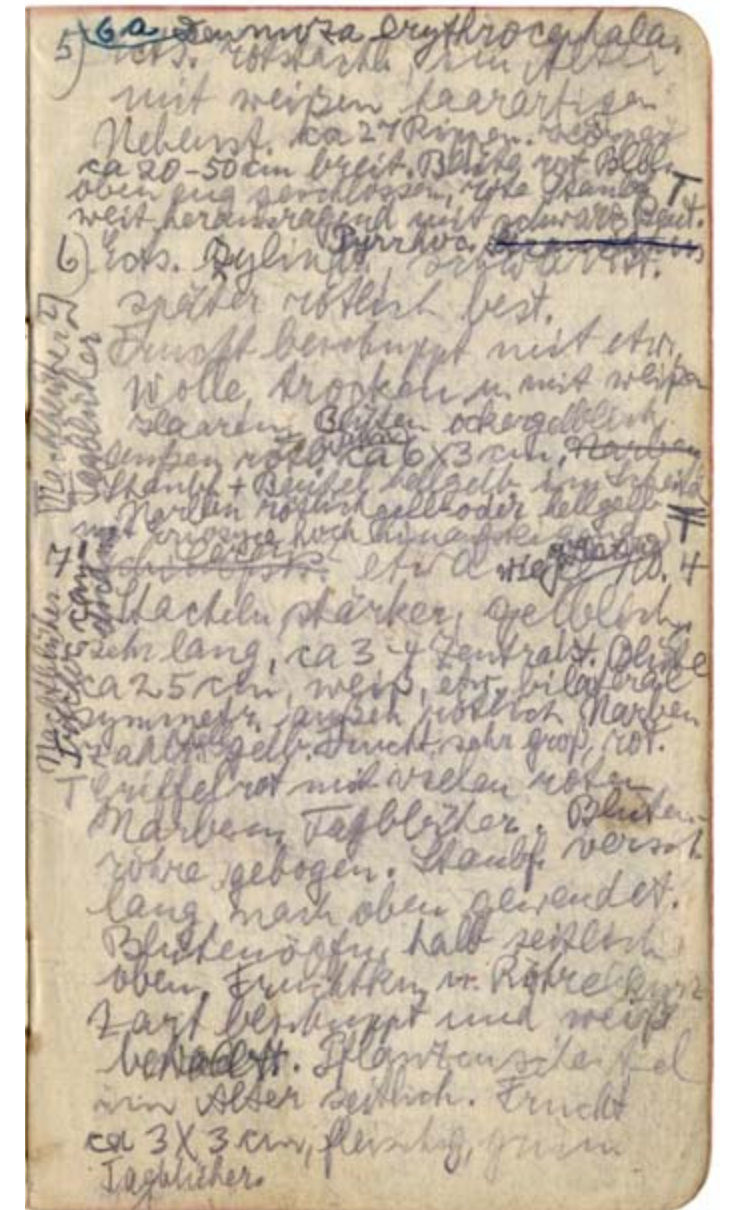 5) 6a Denmoza erythrocephala.
rotstachl., im Alter
mit weißen haarartigen
Nebenst. ca 27 Rippen.
ca 20-50 cm breit. Blüte rot Blbl.
oben eng geschlossen, rote Staubf.
weit herausragend mit schwarz. Beut. T
6) Ects. Pyrrhoc.
Zylindr.,
später rötlich best.
Frucht beschuppt mit etw.
Wolle, trocken u. mit weißen
Haaren, Blüten ockergelblich
außen rötl. ca 6 X 3 cm, Narben
Staubf + Beutel hellgelb im
Narben rötlichgelb oder hellgelb
Tagblüher
7) etwa wie No. 4
Stacheln stärker, gelblich,
sehr lang, ca 3-4 Zentralst. Blüte
ca 25 cm, weiß, etw. bilateral
symmetr. außen rötlich Narben
zahlr. gelb. Frucht sehr groß, rot.
Nachtblüher
T Griffel rot mit vielen roten
Narben, Tagblüher. Blüten-
röhre gebogen. Staubf. versch.
lang, nach oben gewendet.
Blütenöffn. halb seitlich
oben, Fruchtkn. u. Röhre kurz
zart beschuppt und weiß
bewollt. Pflanzenscheitel
im Alter seitlich. Frucht
ca 3 X 3 cm, fleischig, grün
Tagblüher